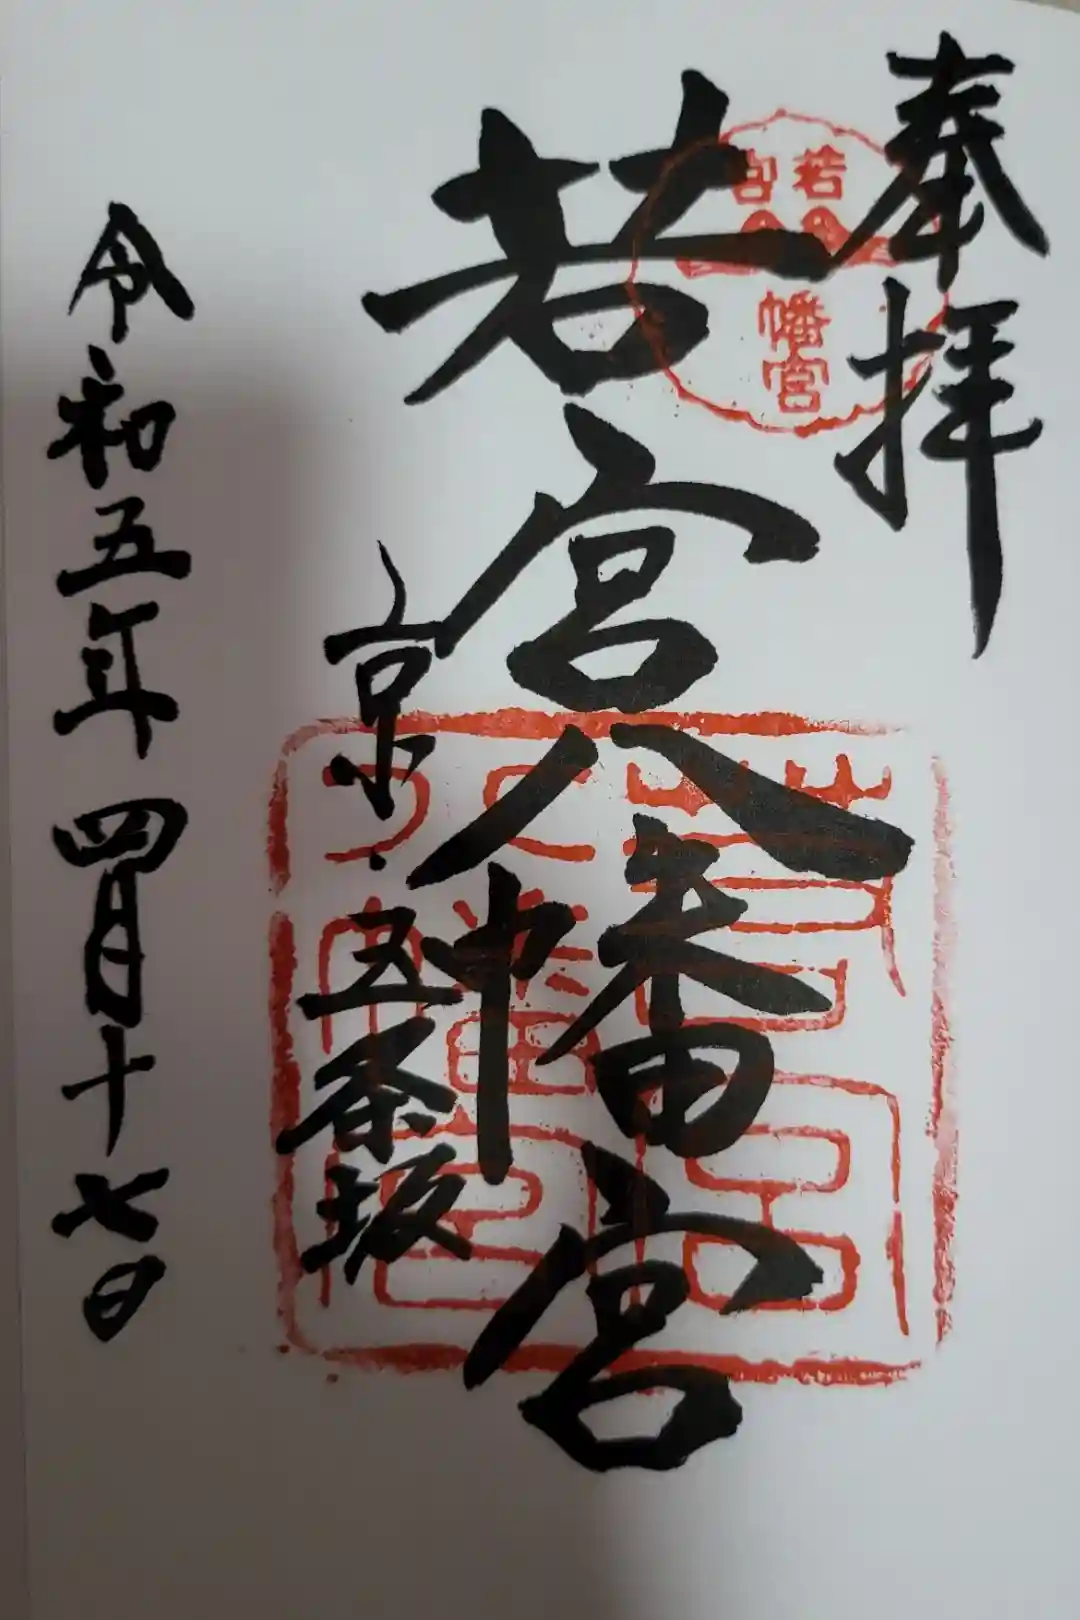 奉拝
若宮八幡宮
京・五条坂
令和五年四月十七日
若宮
幡宮
若宮八幡宮